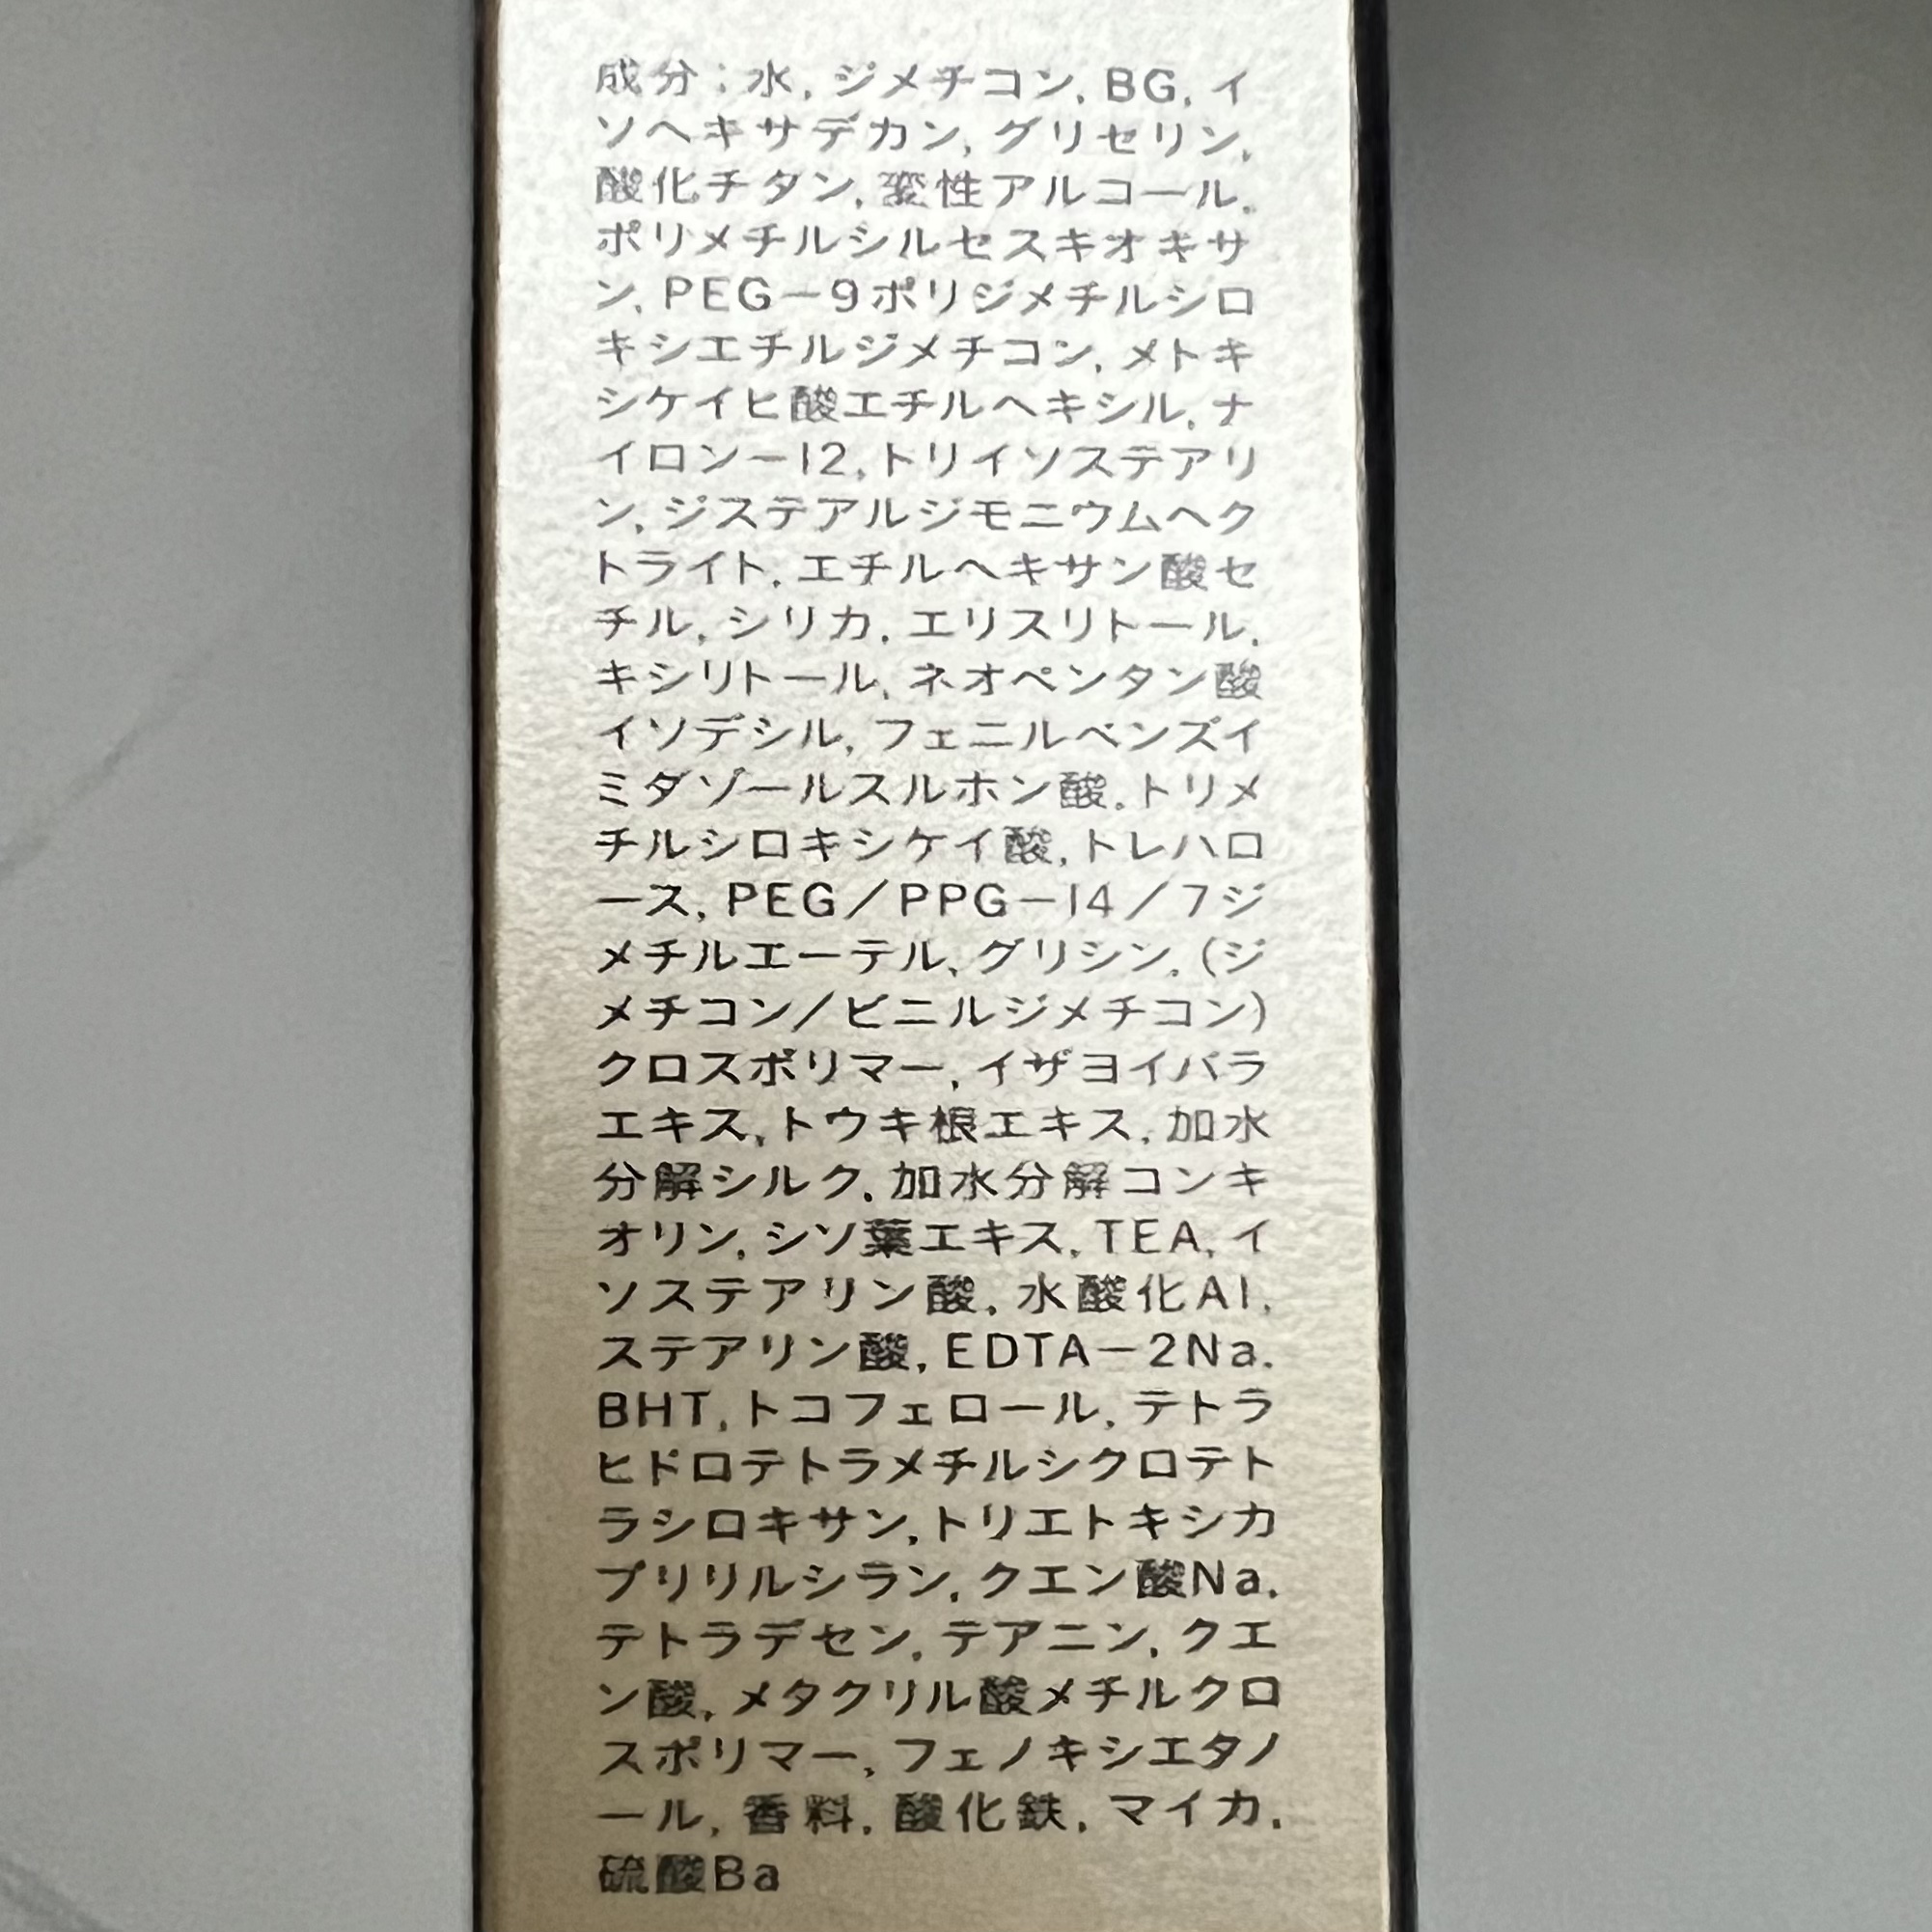 成分:水, ジメチコン, BG, イ
ソヘキサデカン, グリセリン,
酸化チタン, 変性アルコール,
ポリメチルシルセスキオキサ
ン, PEG-9ポリジメチルシロ
キシエチルジメチコン, メトキ
シケイヒ酸エチルヘキシル, ナ
イロン-12, トリイソステアリ
ン, ジステアルジモニウムヘク
トライト, エチルヘキサン酸セ
チル, シリカ, エリスリトール,
キシリトール, ネオペンタン酸
イソデシル, フェニルベンズイ
ミダゾールスルホン酸, トリメ
チルシロキシケイ酸, トレハロ
ース, PEG/PPG-14/7ジ
メチルエーテル, グリシン, (ジ
メチコン/ビニルジメチコン)
クロスポリマー, イザヨイバラ
エキス, トウキ根エキス, 加水
分解シルク, 加水分解コンキ
オリン, シソ葉エキス, TEA, イ
ソステアリン酸, 水酸化Al,
ステアリン酸, EDTA-2Na,
BHT, トコフェロール, テトラ
ヒドロテトラメチルシクロテト
ラシロキサン, トリエトキシカ
プリリルシラン, クエン酸Na,
テトラデセン, テアニン, クエ
ン酸, メタクリル酸メチルクロ
スポリマー, フェノキシエタノ
ール, 香料, 酸化鉄, マイカ,
硫酸Ba